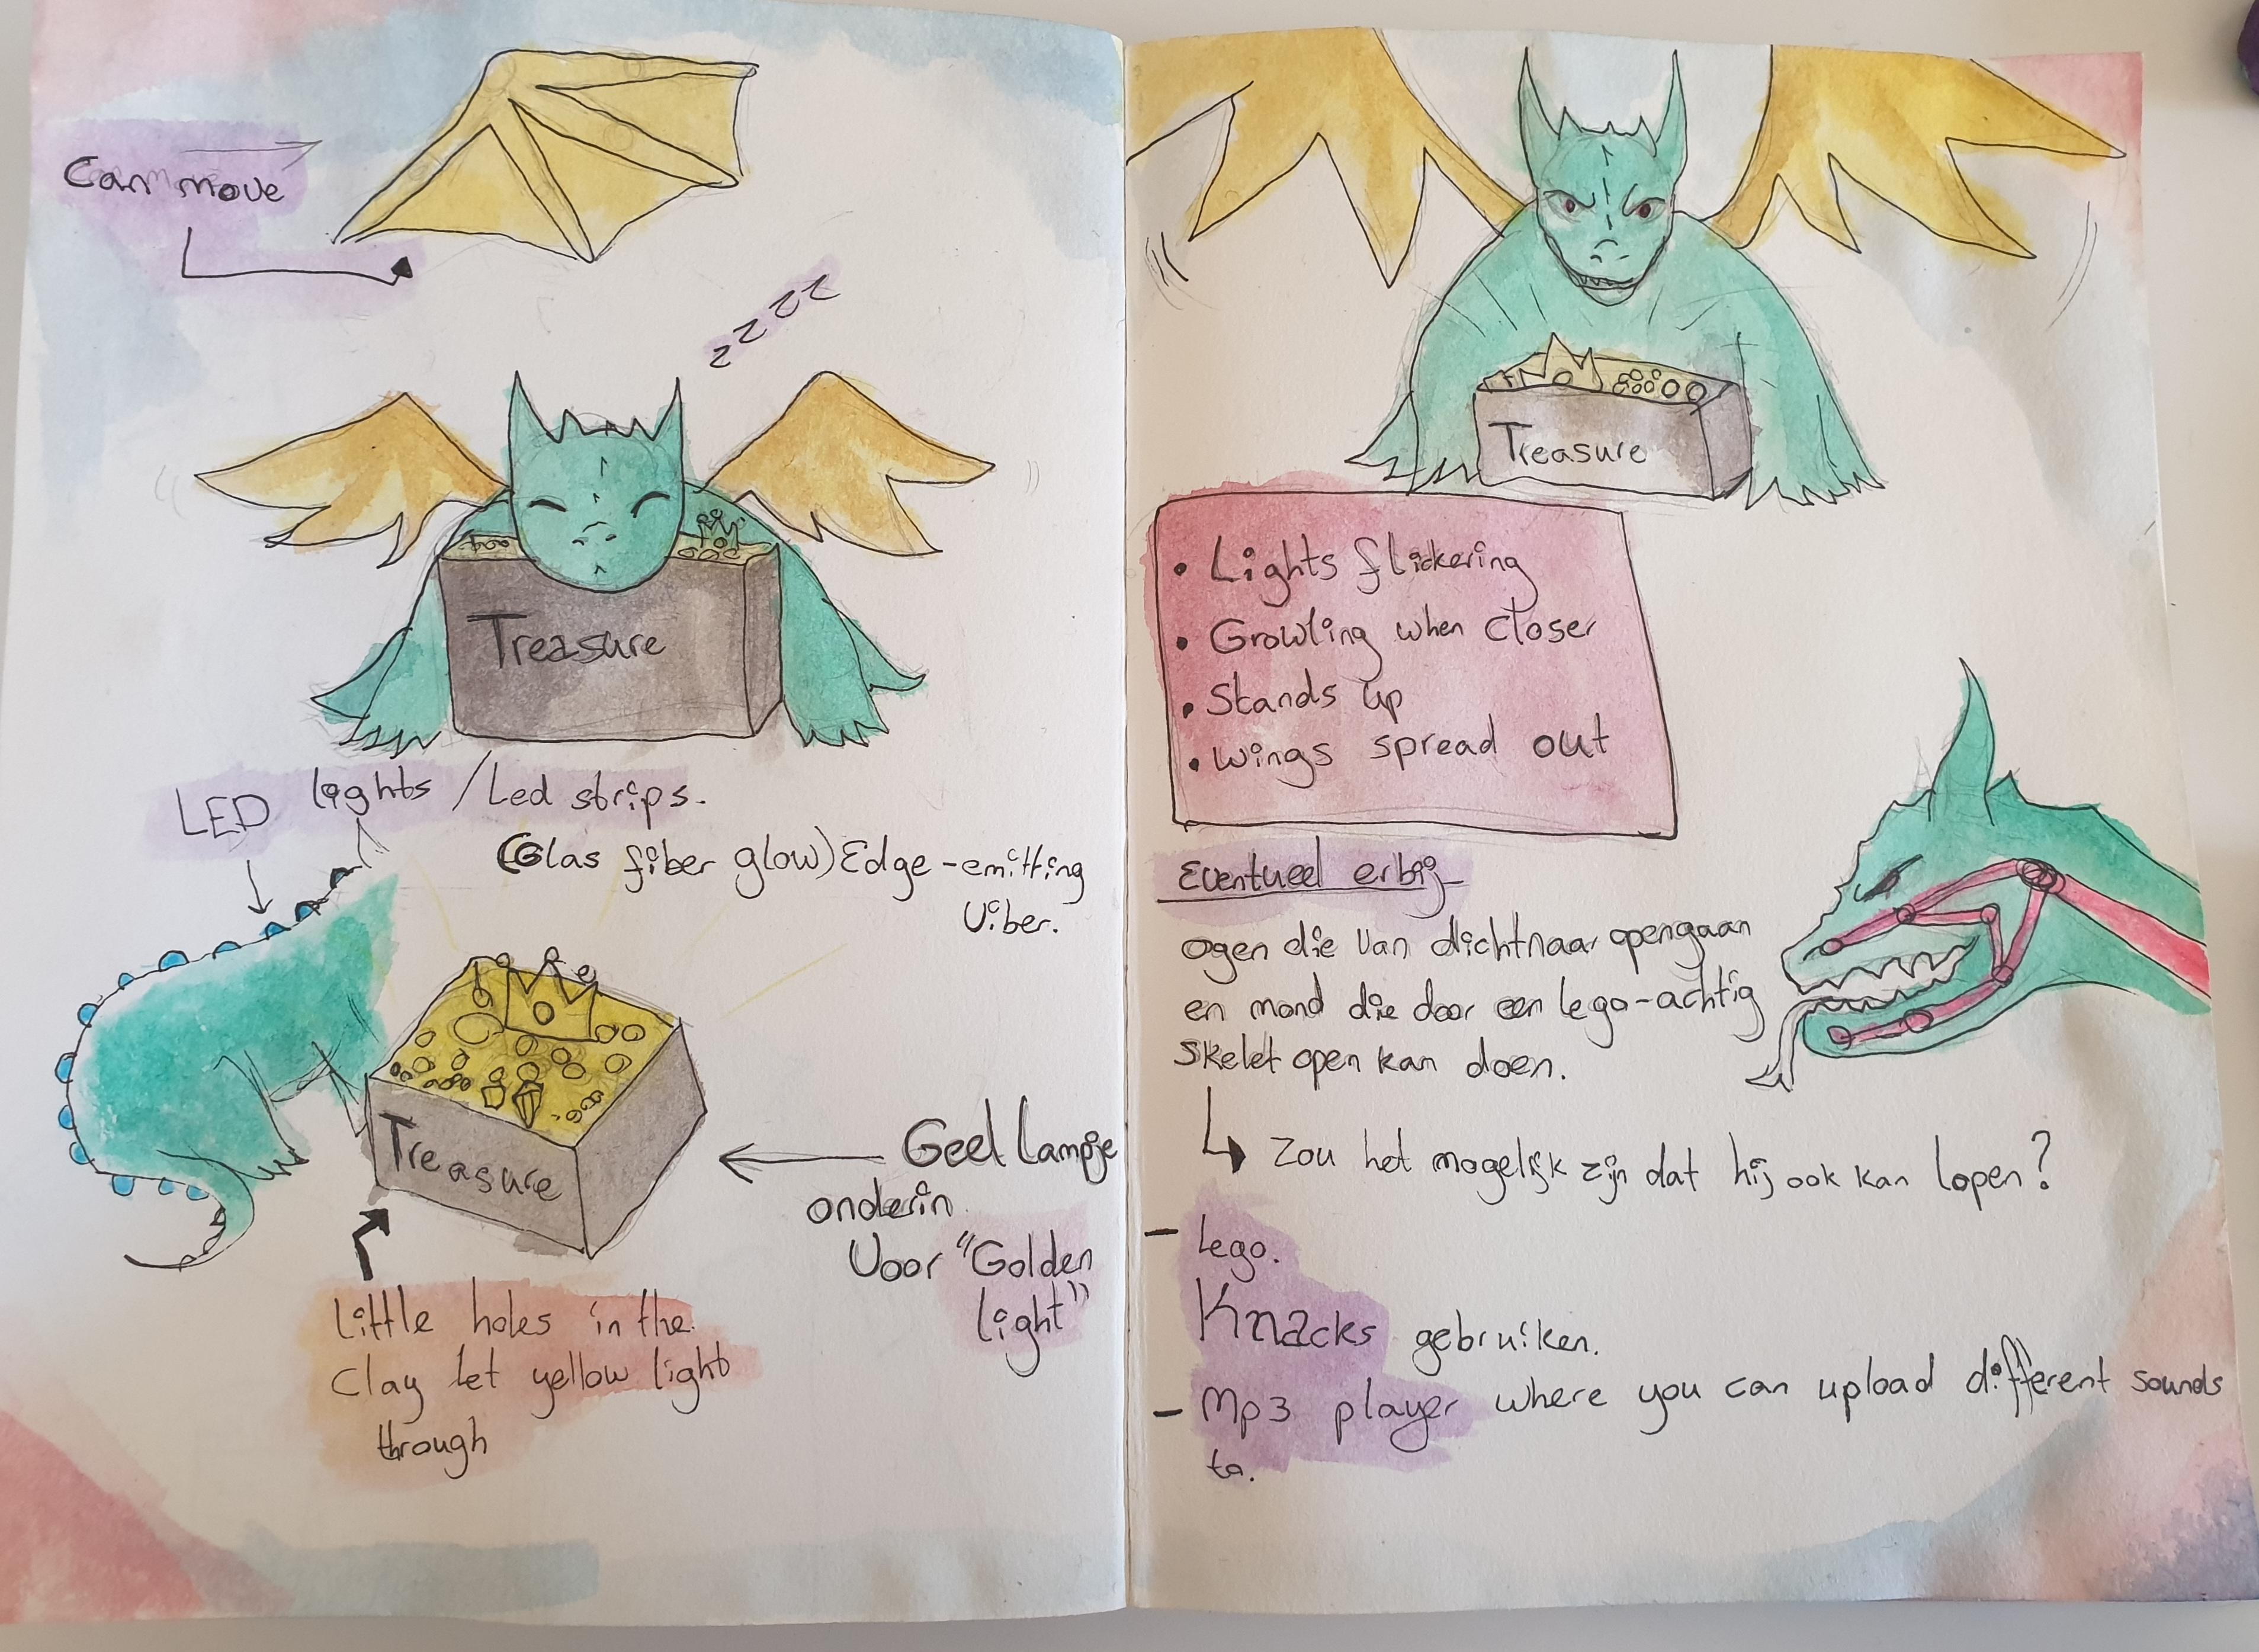 Can move
zzzz
Treasure
LED lights / Led strips.
(Glas fiber glow) Edge-emitting
Viber.
Treasure
Geel lampje
onderin
Voor "Golden
light"
Little holes in the
clay let yellow light
through
Treasure
• Lights flickering
• Growling when closer
• Stands up
• Wings spread out
Eventueel erbij
ogen die van dicht naar opengaan
en mond die door een lego-achtig
skelet open kan doen.
Zou het mogelijk zijn dat hij ook kan lopen?
- Lego.
Knacks gebruiken.
- Mp3 player where you can upload different sounds
to.